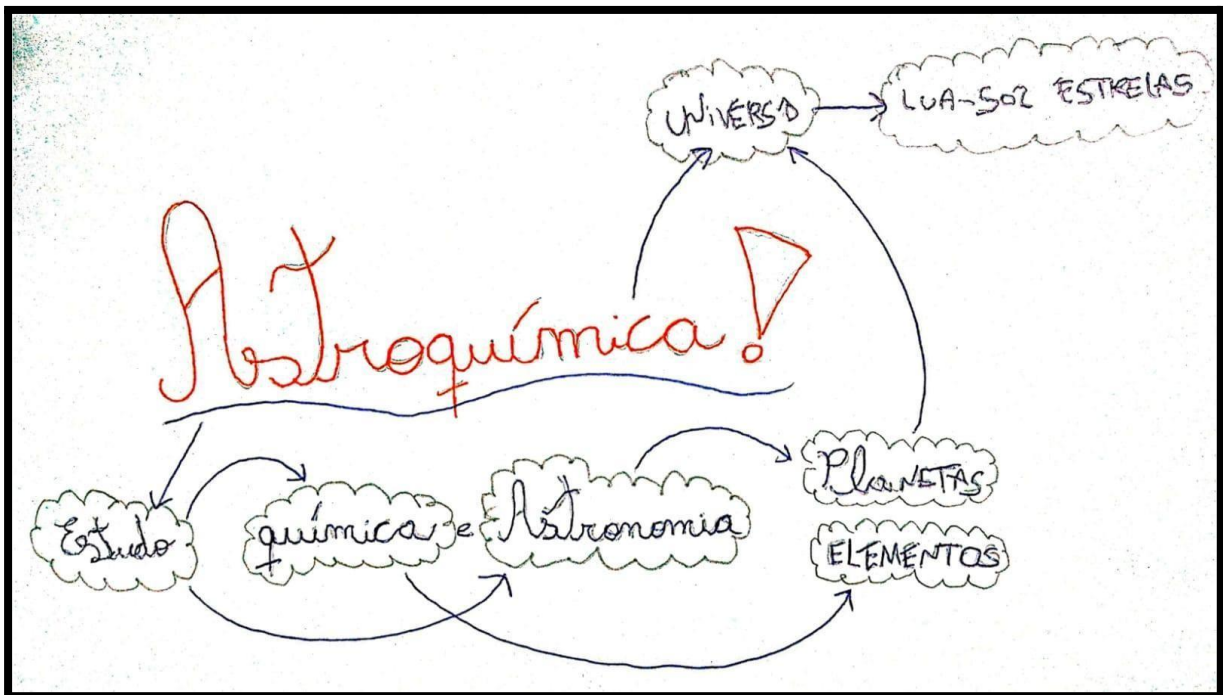 UNIVERSO
LUA-SOL ESTRELAS
Astroquímica!
Estudo
química e Astronomia
PlaNETAS
ELEMENTOS